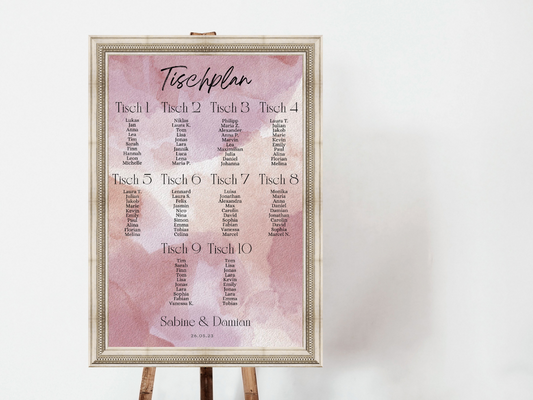 Tischplan
Tisch 1 Tisch 2 Tisch 3 Tisch 4
Lukas Niklas Philipp Laura T.
Jan Laura K. Maria Z. Julian
Anna Tom Alexander Jakob
Lea Lisa Anna B. Marie
Tim Jonas Marvin Kevin
Sarah Lara Lea Emily
Finn Jannik Maximilian Paul
Hannah Luca Julia Alina
Leon Lena Daniel Florian
Michelle Maria P. Johanna Melina
Tisch 5 Tisch 6 Tisch 7 Tisch 8
Laura T. Lennard Luisa Monika
Julian Laura S. Jonathan Maria
Jakob Felix Alexandra Anna
Marie Jasmin Max Daniel
Kevin Nico Carolin Damian
Emily Nina David Jonathan
Paul Simon Sophia Carolin
Alina Emma Fabian David
Florian Tobias Vanessa Sophia
Melina Celina Marcel Marcel N.
Tisch 9 Tisch 10
Tim Tom
Sarah Lisa
Finn Jonas
Tom Lara
Lisa Kevin
Jonas Emily
Lara Jonas
Sophia Lara
Fabian Emma
Vanessa K. Tobias
Sabine & Damian